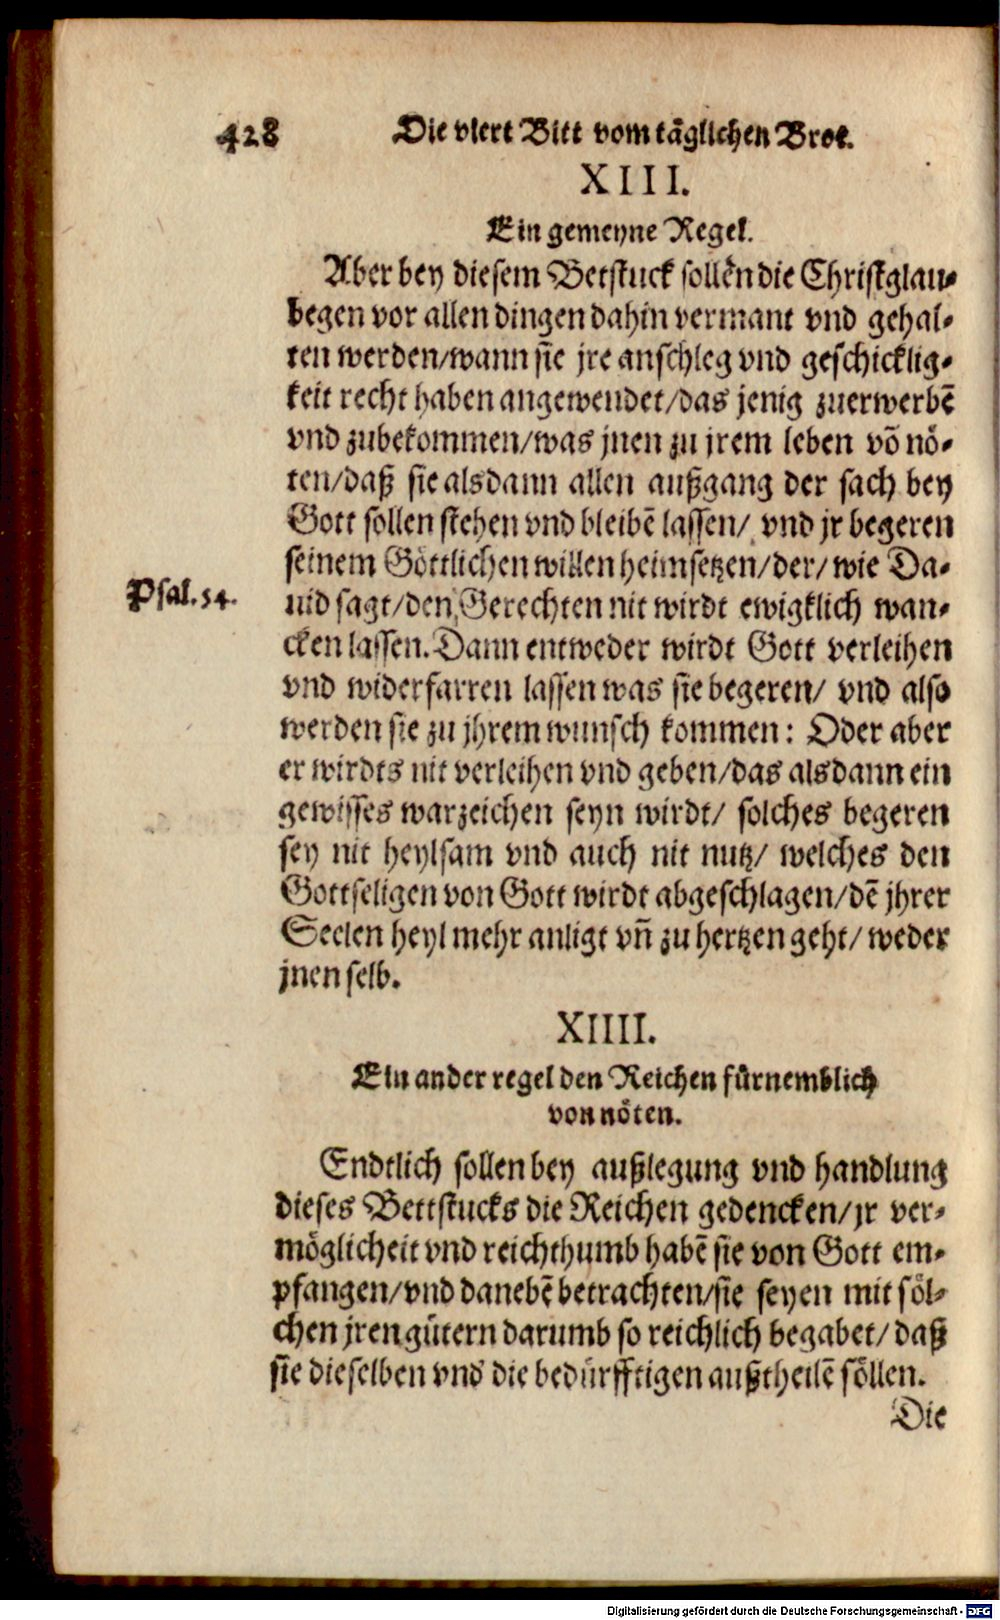 428 Die viert Bitt vom täglichen Brot.
XIII.
Ein gemeyne Regel.
Aber bey diesem Betstuck sollen die Christglau-
begen vor allen dingen dahin vermant vnd gehal-
ten werden/wann sie jre anschleg vnd geschicklig-
keit recht haben angewendet/das jenig zuerwerbē
vnd zubekommen/was jnen zu jrem leben vō nö-
ten/daß sie alsdann allen außgang der sach bey
Gott sollen stehen vnd bleibē lassen/ vnd jr begeren
seinem Göttlichen willen heimsetzen/der/ wie Da-
Psal.54.
uid sagt/den Gerechten nit wirdt ewigklich wan-
cken lassen. Dann entweder wirdt Gott verleihen
vnd widerfarren lassen was sie begeren/ vnd also
werden sie zu jhrem wunsch kommen: Oder aber
er wirdts nit verleihen vnd geben/das alsdann ein
gewisses warzeichen seyn wirdt/ solches begeren
sey nit heylsam vnd auch nit nutz/ welches den
Gottseligen von Gott wirdt abgeschlagen/dē jhrer
Seelen heyl mehr anligt vñ zu hertzen geht/ weder
jnen selb.
XIIII.
Ein ander regel den Reichen fürnemblich
von nöten.
Endtlich sollen bey außlegung vnd handlung
dieses Bettstucks die Reichen gedencken/jr ver-
möglicheit vnd reichthumb habē sie von Gott em-
pfangen/vnd danebē betrachten/sie seyen mit söl-
chen jren gütern darumb so reichlich begabet/ daß
sie dieselben vnd die bedürfftigen außtheilē söllen.
Die
Digitalisierung gefördert durch die Deutsche Forschungsgemeinschaft - DFG